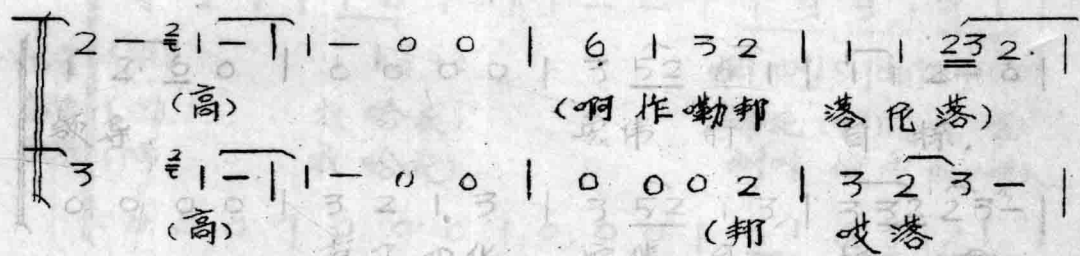 2 — 2 1 — | 1 — 0 0 | 6̣ 1 3 2 | 1 1 2 3 2· |
(高) (啊 作 嘞 邦 落 尼 落)
3 2 1 — | 1 — 0 0 | 0 0 0 2 | 3 2 3 — |
(高) (邦 哎 落